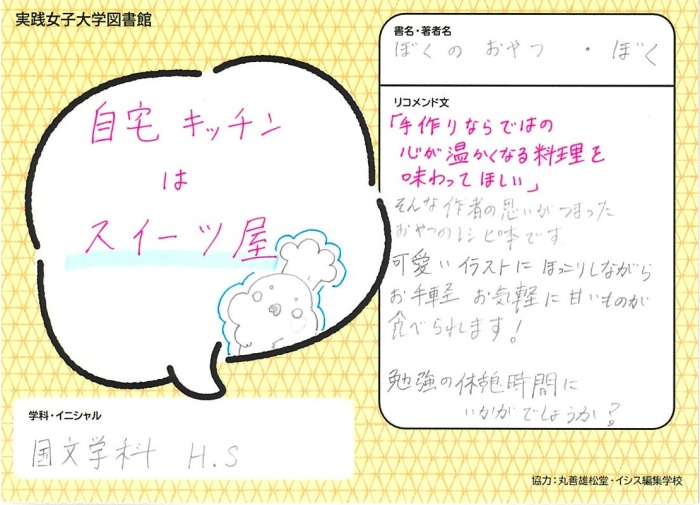 実践女子大学図書館
自宅 キッチン
は
スイーツ屋
学科・イニシャル
国文学科 H.S
書名・著者名
ぼくの おやつ ・ ぼく
リコメンド文
「手作りならではの
心が温かくなる料理を
味わってほしい」
そんな作者の思いがつまった
おやつのレシピ本です
可愛いイラストに ほっこりしながら
お手軽 お気軽に 甘いものが
食べられます！
勉強の休憩時間に
いかがでしょうか？
協力：丸善雄松堂・イシス編集学校